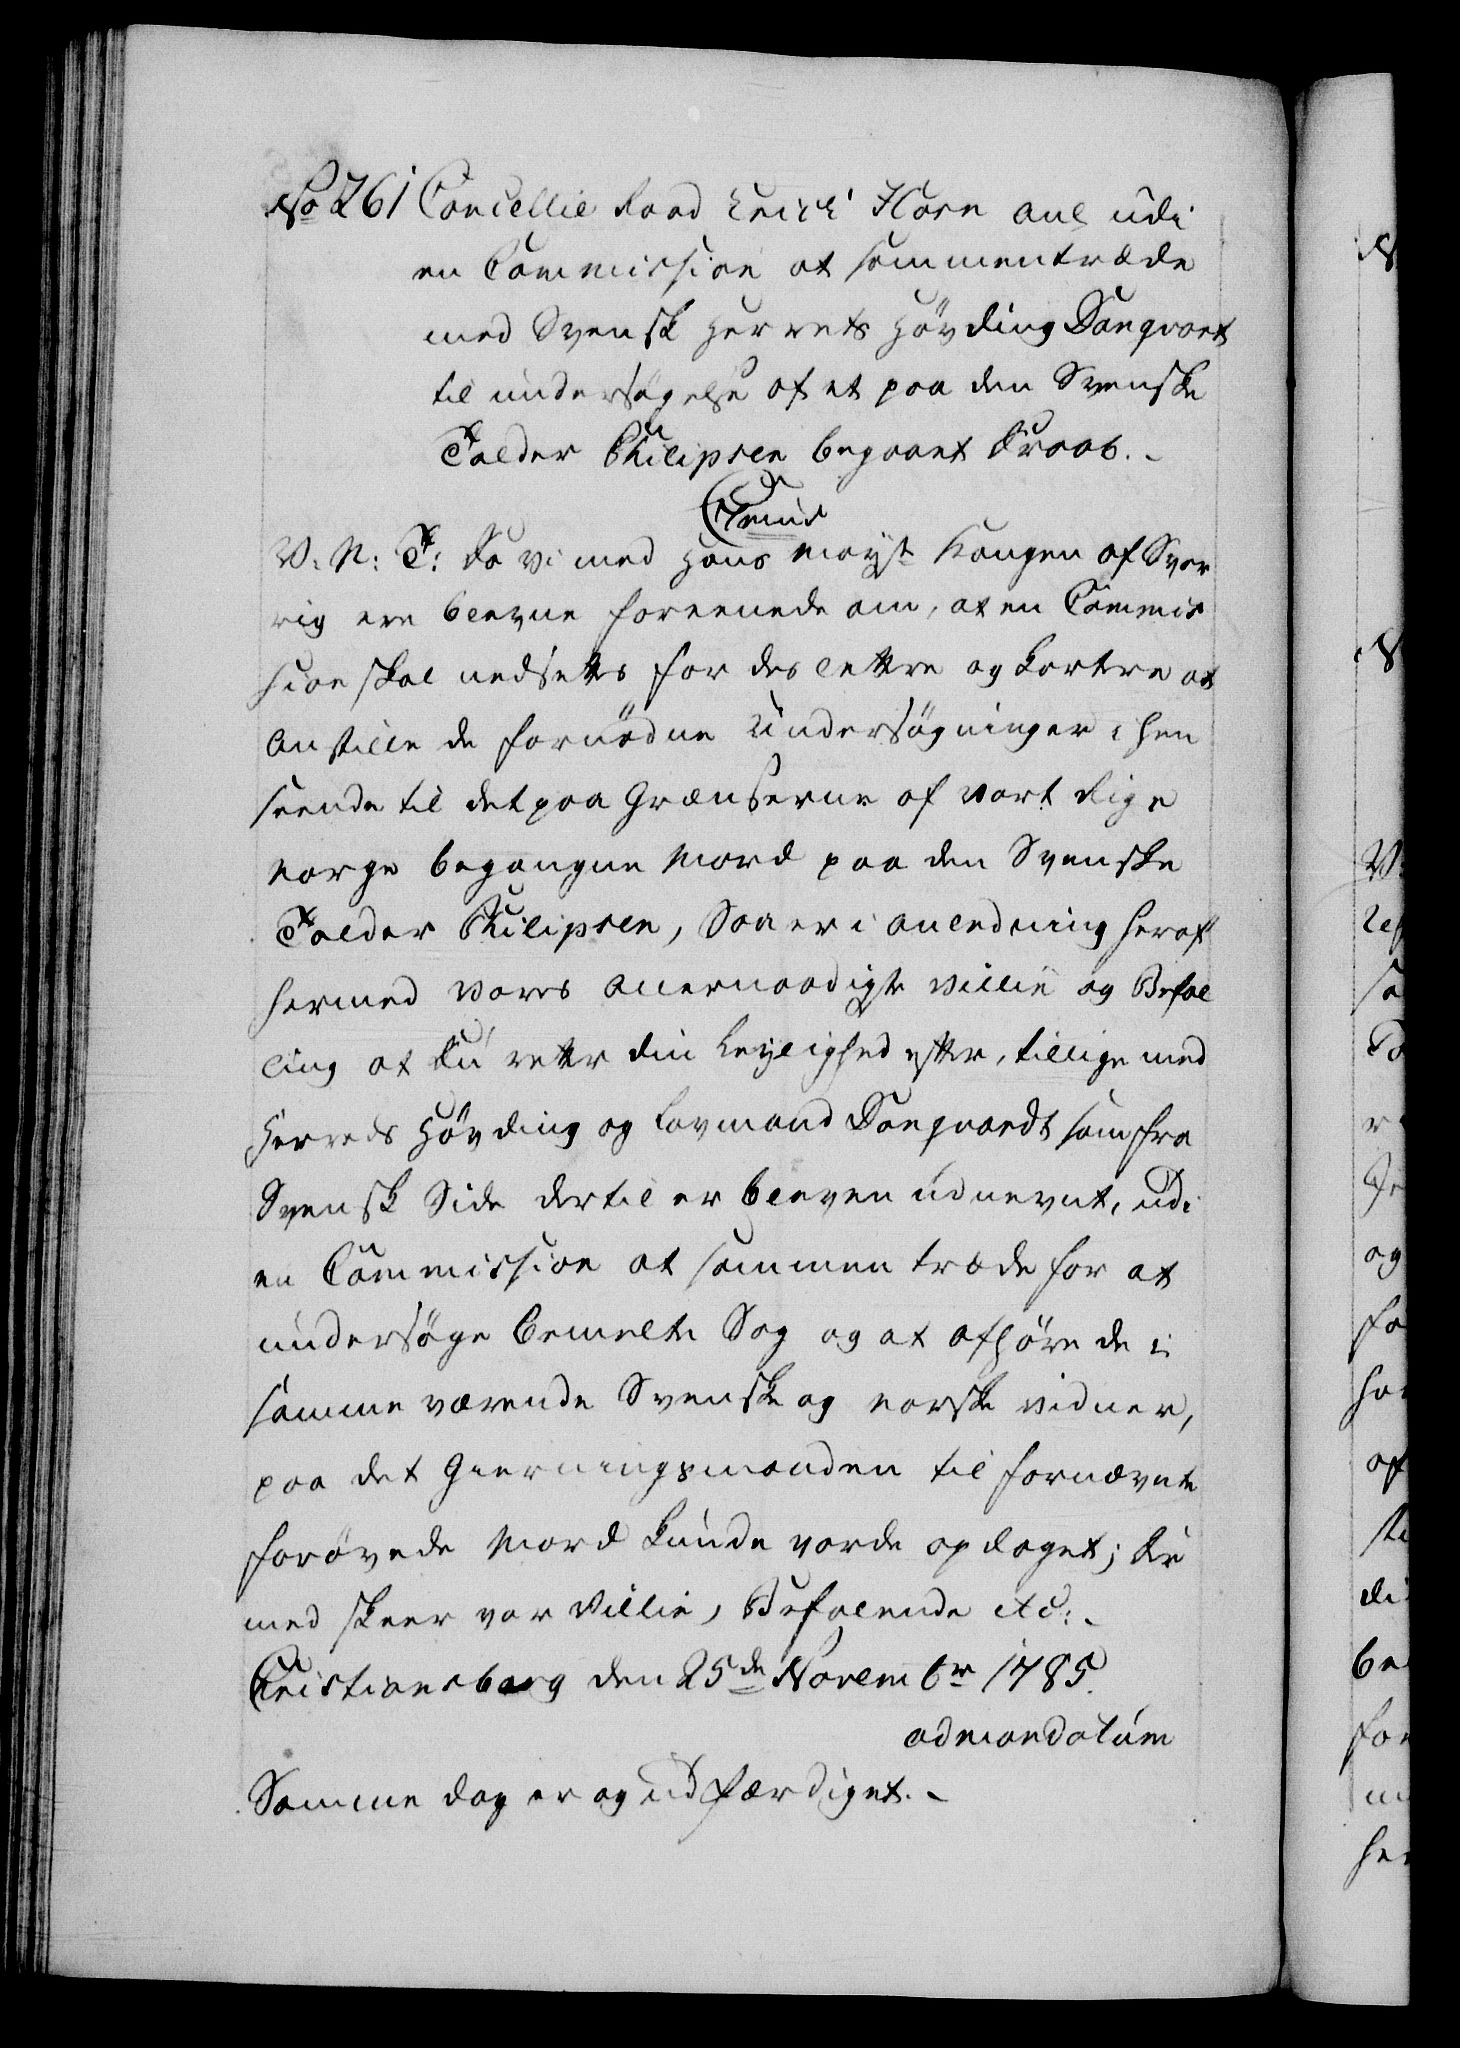 No 261 Cancellie Raad Erich Horn anl udi
en Commission at sammentræde
med Svensk Herrets Høvding Danqvart
til undersøgelse af et paa den Svenske
Tolder Philipsen begaaet Draab.
V: N: T: Da vi med Hans Mayst Kongen af Sver
rig ere blevne foreenede om, at en Commis
sion skal nedsettes for des lettre og kortere at
anstille de fornødne Undersøgninger i hen
seende til det paa Grænserne af vort Rige
Norge begangne Mord paa den Svenske
Tolder Philipsen, Saa er i anledning heraf
hermed vores allernaadigste Villie og Befal
ling at Du retter din Leylighed efter, tillige med
Herreds Høvding og Lavmand Danqvardt som fra
Svensk Side dertil er bleven udnevnt, udi
en Commission at sammentræde for at
undersøge bemelte Sag og at afhøre de i
samme værende Svenske og norske vidner,
paa det Gierningsmanden til fornævnte
forøvede Mord kunde vorde opdaget; Der
med skeer vor Villie, Befalende etc:
Christiansborg den 25de Novembr 1785.
ad mandatum
Samme dag er og udfærdiget.